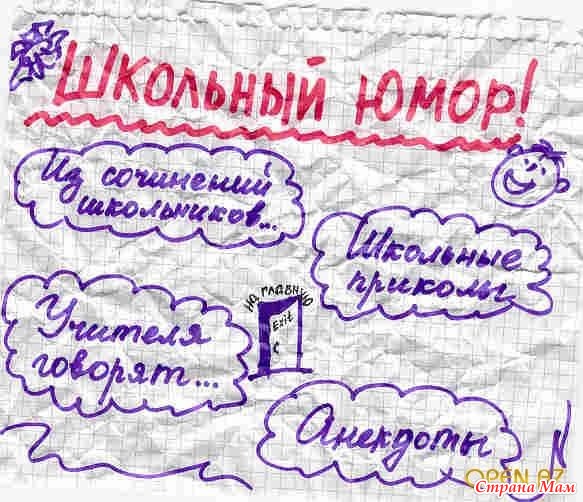 ШКОЛЬНЫЙ ЮМОР!
Из сочинений
школьников...
Школьные
приколы
на главную
Exit
Учителя
говорят...
Анекдоты
OPEN.AZ
Страна Мам